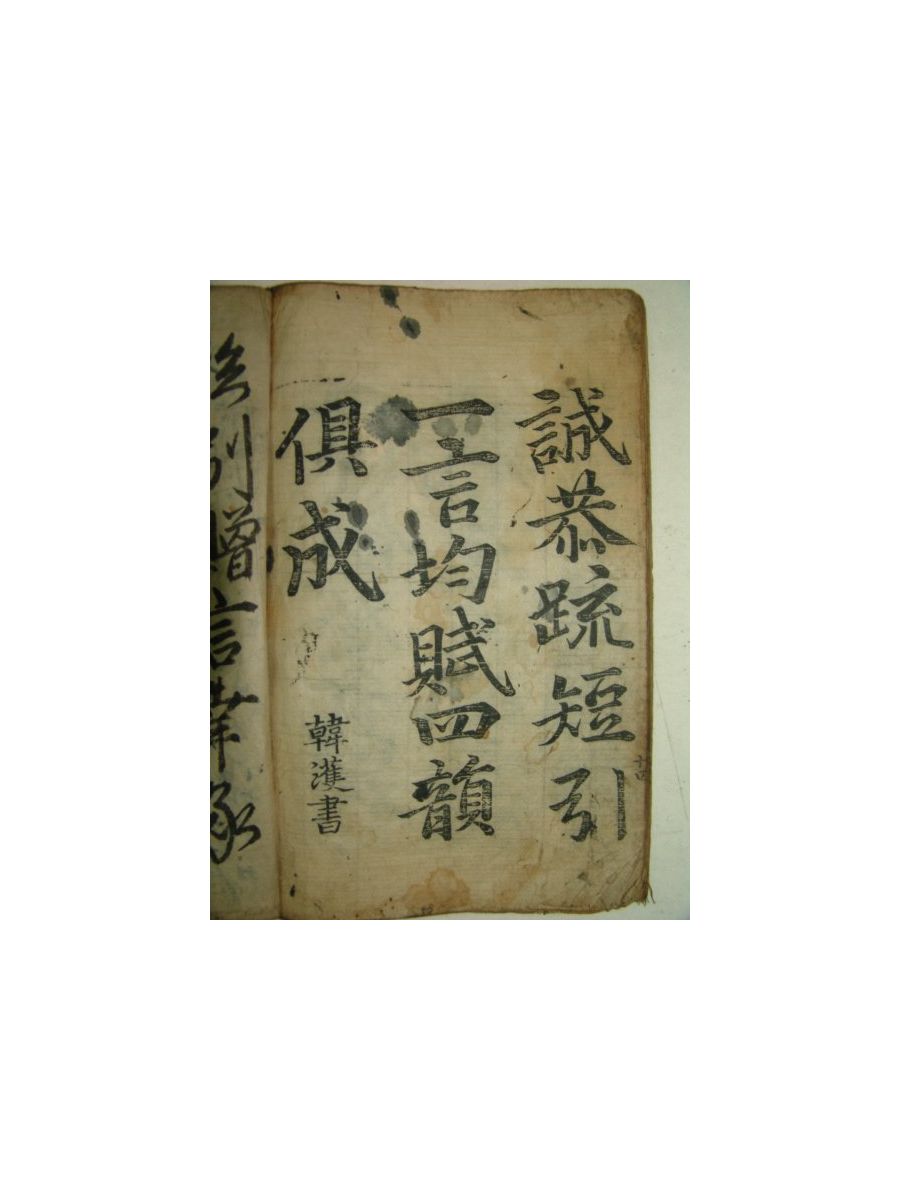 誠恭䟽短引
一言均賦四韻
俱成
韓濩書
別贈言幸承